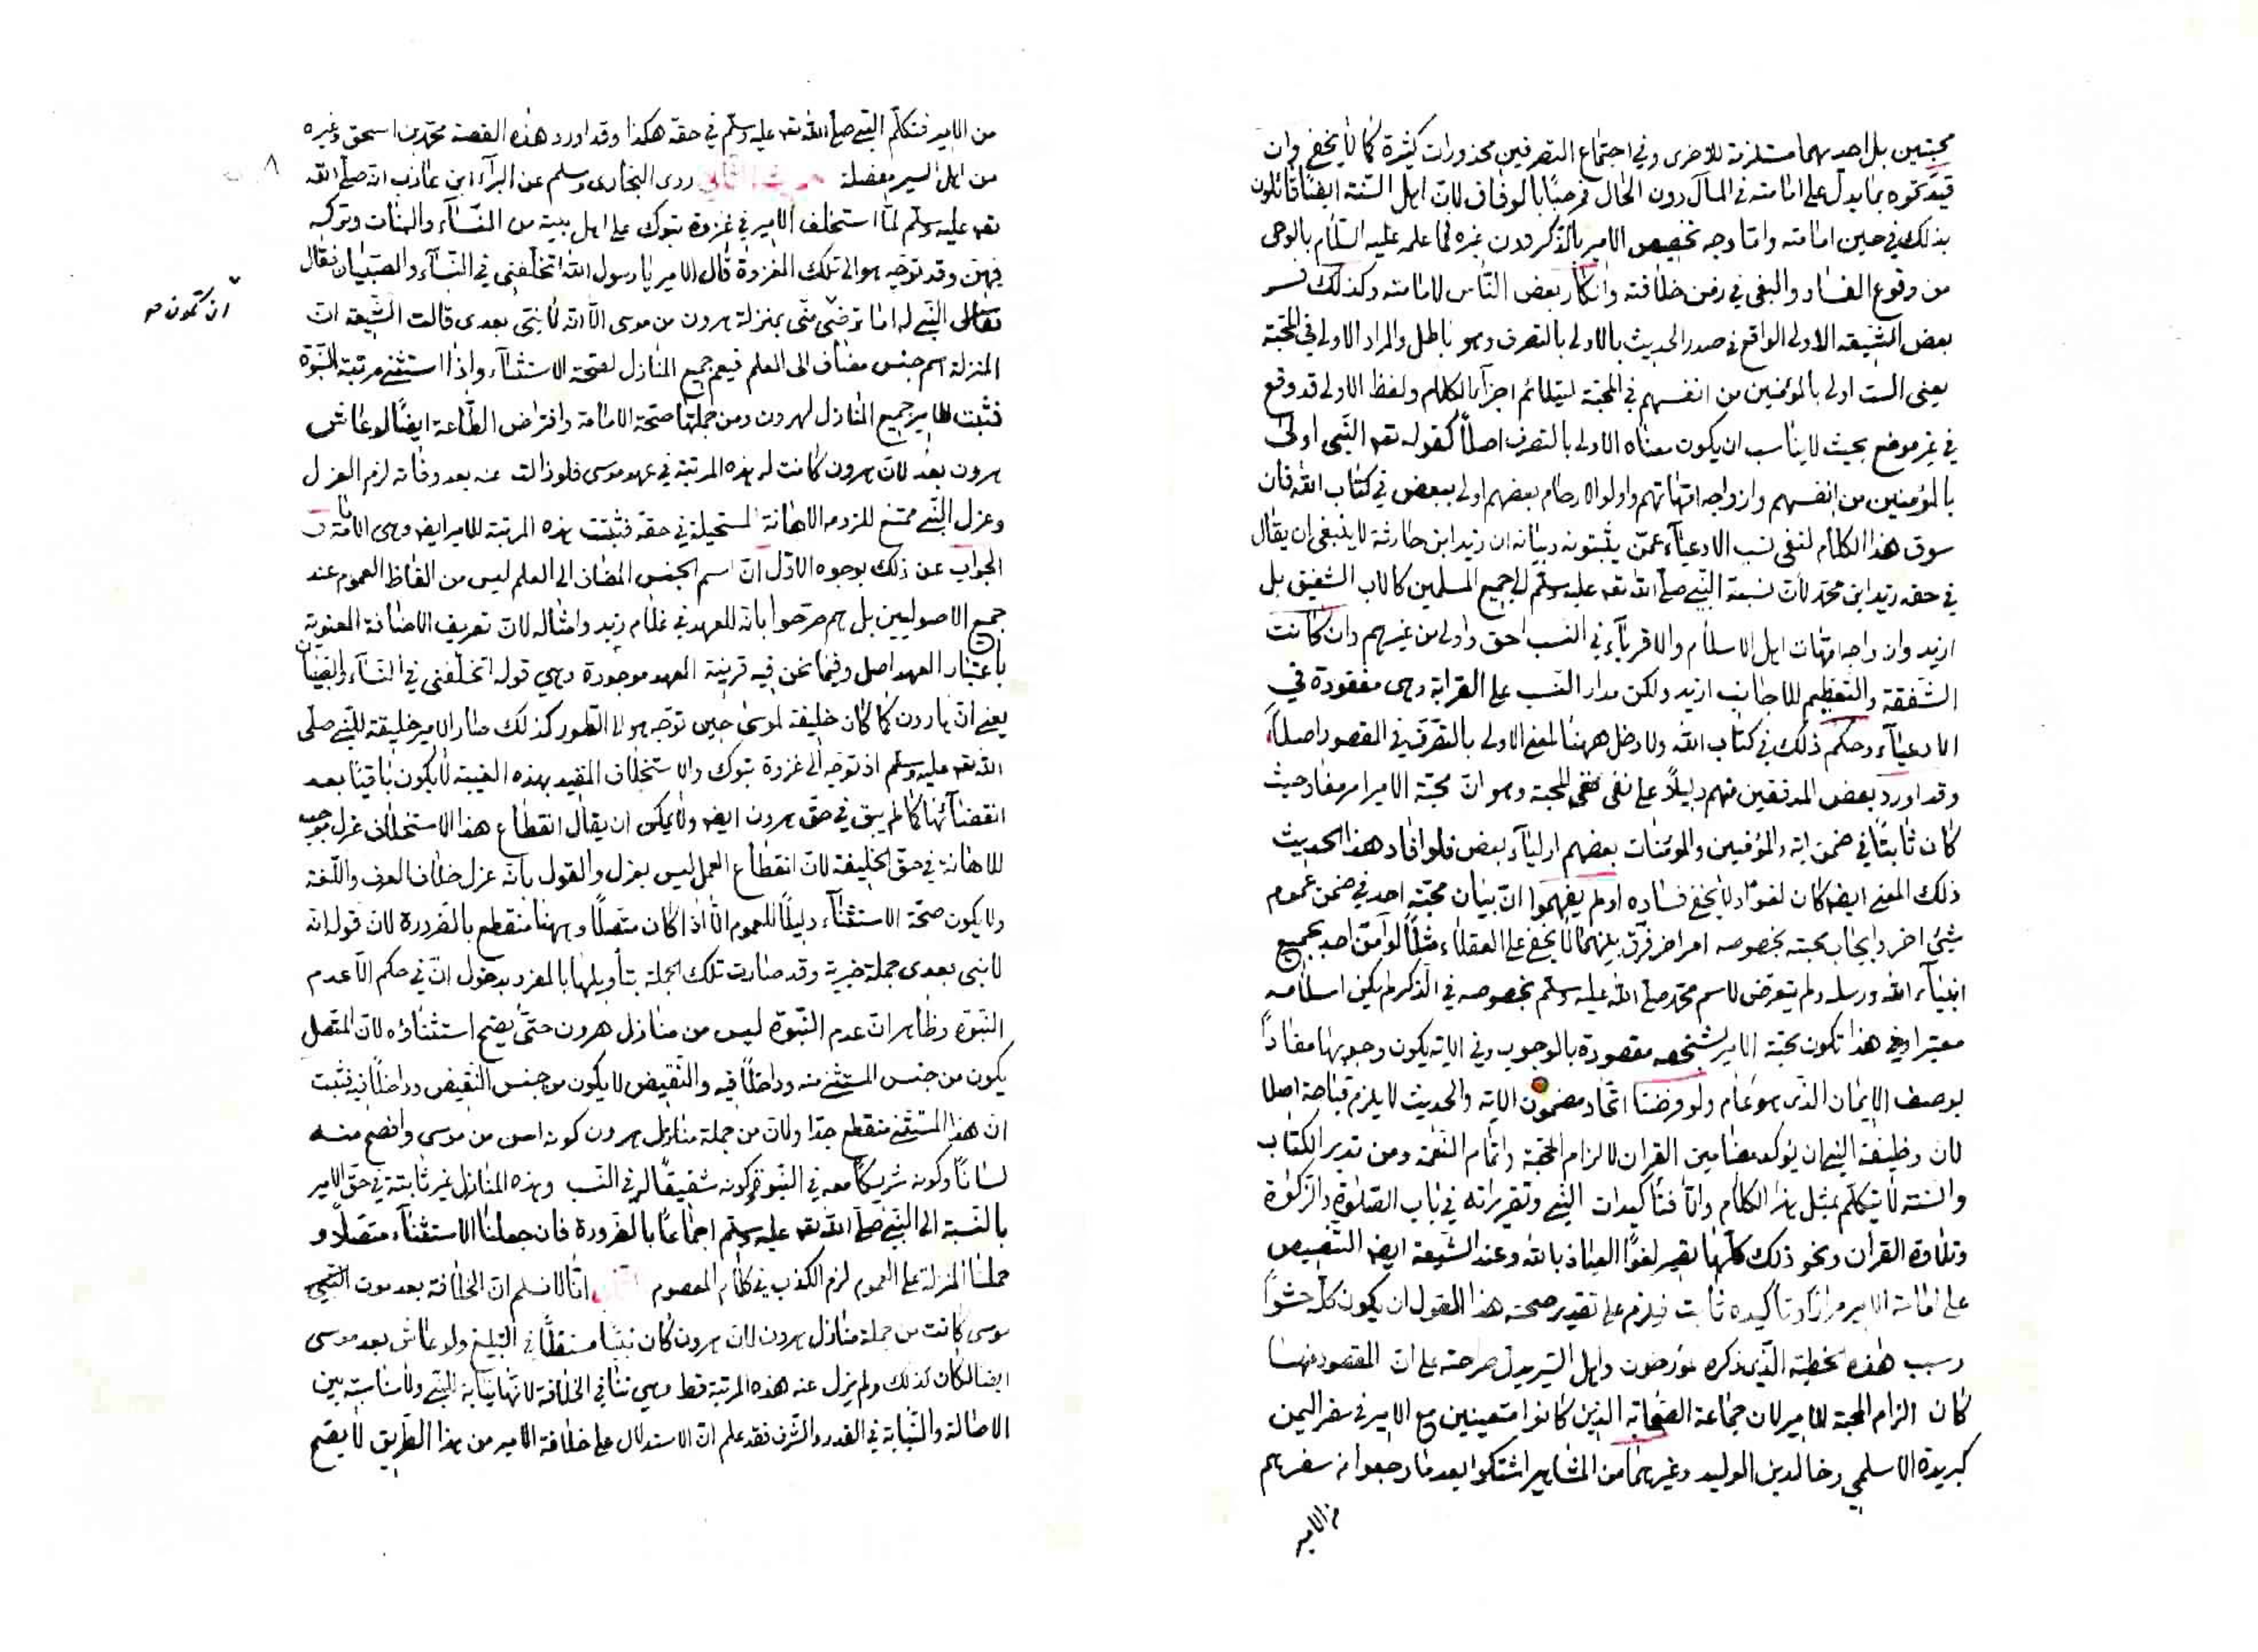 محبتين بل احديهما مستلزمة للاخرى وفي اجتماع التصرفين محذورات كثيرة كما لا يخفى وان
قيدتموه بما يدل على امامته في المآل دون الحال فمرحبًا بالوفاق لان اهل السنة ايضًا قائلون
بذلك في حين امامته واما وجه تخصيص الامير بالذكر دون غيره لما علمه عليه السلام بالوحى
من وقوع الفساد والبغى في زمن خلافته وانكار بعض الناس لامامته وكذلك فسر
بعض الشيعة الاولى الواقع في صدر الحديث بالاولى بالتصرف وهو باطل والمراد الاولى في المحبة
يعنى الست اولى بالمؤمنين من انفسهم في المحبة ليتلائم اجزآء الكلام ولفظ الاولى قد وقع
في غير موضع بحيث لا يناسب ان يكون معناه الاولى بالتصرف اصلًا كقوله تعه النبى اولى
بالمؤمنين من انفسهم وازواجه امهاتهم واولوا الارحام بعضهم اولى ببعض في كتاب الله فان
سوق هذا الكلام لنفى نسب الادعيآء عمن يثبتونه وبيانه ان زيد ابن حارثة لا ينبغى ان يقال
في حقه زيد ابن محمد لان نسبة النبي صلى الله تعه عليه وسلم الى جميع المسلمين كالاب الشفيق بل
ازيد وازواجه امهات اهل الاسلام والاقربآء في النسب احق واولى من غيرهم وان كانت
الشفقة والتعظيم للاجانب ازيد ولكن مدار النسب على القرابة وهى مفقودة في
الادعيآء وحكم ذلك في كتاب الله ولا دخل ههنا لمعنى الاولى بالتصرف في المقصود اصلًا
وقد اورد بعض المدققين منهم دليلًا على نفى نفى المحبة وهو ان محبة الامير امر مفاد حيث
كان ثابتًا في ضمن اية والمؤمنين والمومنات بعضهم اوليآء بعض فلو افاد هذا الحديث
ذلك المعنى ايضه كان لغوًا ولا يخفى فساده اولم يفهموا ان بيان محبة احد في ضمن عموم
شيئ اخر وايجاب محبته بخصوصه امر اخر فرق بينهما لا يخفى على العقلاء مثلًا لو آمن احد بجميع
انبيآء الله ورسله ولم يتعرض لاسم محمد صلى الله عليه وسلم بخصوصه في الذكر لم يكن اسلامه
معتبرا وفي هذا تكون محبة الامير لشخصه مقصودة بالوجوب وفي الاية يكون وجوبها مفادًا
بوصف الايمان الذى هو عام ولو فرضنا اتحاد مضمون الاية والحديث لا يلزم قباحة اصلا
لان وظيفة النبي ان يؤكد مضامين القران لالزام الحجة واتمام النعمة ومن تدبر الكتاب
والسنة لا يتكلم بمثل هذا الكلام والا فتأكيدات النبي وتقريراته في باب الصلوة والزكوة
وتلاوة القران ونحو ذلك كلها تصير لغوًا العياذ بالله وعند الشيعة ايضه التنصيص
على امامة الامير مرارًا وتأكيده ثابت فيلزم على تقدير صحة هذا القول ان يكون كله حشوًا
وسبب هذه الخطبة الذى ذكره مؤرخون واهل السير يدل صراحة على ان المقصود منها
كان الزام المحبة للامير لان جماعة الصحابة الذين كانوا متعينين مع الامير في سفر اليمن
كبريدة الاسلمي وخالد بن الوليد وغيرهما من المشاهير اشتكوا بعد ما رجعوا من سفرهم
من الامير
من الامير فتكلم النبي صلى الله تعه عليه وسلم في حقه هكذا وقد اورد هذه القصة محمد بن اسحق وغيره
من اهل السير مفصلة الحديث الثاني روى البخارى ومسلم عن البرآء ابن عازب انه صلى الله
تعه عليه وسلم لما استخلف الامير في غزوة تبوك على اهل بيته من النسآء والبنات وتركه
فيهن وقد توجه هو الى تلك الغزوة قال الامير يا رسول الله اتخلفنى في النسآء والصبيان فقال
النبي له اما ترضى منى بمنزلة هرون من موسى الا انه لا نبى بعدى قالت الشيعة ان
ان تكون
المنزلة اسم جنس مضاف الى العلم فيعم جميع المنازل لصحة الاستثنآء واذا استثنى مرتبة النبوة
فثبت للامير جميع المنازل لهرون ومن جملتها صحة الامامة وافتراض الطاعة ايضًا لو عاش
هرون بعد لان هرون كانت له هذه المرتبة في عهد موسى فلو زالت عنه بعد وفاته لزم العزل
وعزل النبي ممتنع للزومه الاهانة المستحيلة في حقه فثبتت هذه المرتبة للامير ايضه وهى الامامة
الجواب عن ذلك بوجوه الاول ان اسم الجنس المضاف الى العلم ليس من الفاظ العموم عند
جميع الاصوليين بل هم صرحوا بانه للعهد في غلام زيد وامثاله لان تعريف الاضافة المعنوية
باعتبار العهد اصل وفيما نحن فيه قرينة العهد موجودة وهي قوله اتخلفنى في النسآء والصبيان
يعنى ان هارون كما كان خليفة لموسى حين توجه هو الى الطور كذلك صار الامير خليقة للنبي صلى
الله تعه عليه وسلم اذ توجه الى غزوة تبوك والاستخلاف المقيد بهذه الغيبة لا يكون باقيًا بعد
انقضآئها كما لم يبق في حق هرون ايضه ولا يمكن ان يقال انقطاع هذا الاستخلاف عزل موجب
للاهانة في حق الخليفة لان انقطاع العمل ليس بعزل والقول بانه عزل خلاف العرف واللغة
ولا يكون صحة الاستثنآء دليلًا للعموم الا اذا كان متصلًا وههنا منقطع بالضرورة لان قوله انه
لا نبى بعدى جملة خبرية وقد صارت تلك الجملة بتأويلها بالمفرد بدخول ان في حكم الا عدم
النبوة وظاهر ان عدم النبوة ليس من منازل هرون حتى يصح استثناؤه لان المتصل
يكون من جنس المستثنى منه وداخلًا فيه والنقيض لا يكون من جنس النقيض وداخلًا فيه فثبت
ان هذا المستثنى منقطع جدا ولان من جملة منازل هرون كونه اسن من موسى وافصح منه
لسانًا وكونه شريكًا معه في النبوة وكونه شقيقًا له في النسب وهذه المنازل غير ثابتة في حق الامير
بالنسبة الى النبي صلى الله تعه عليه وسلم اجماعًا بالضرورة فان جعلنا الاستثنآء متصلًا و
حملنا المنزلة على العموم لزم الكذب في كلام المعصوم انا لا نسلم ان الخلافة بعد موت
موسى كانت من جملة منازل هرون لان هرون كان نبيًا مستقلًا في التبليغ ولو عاش بعد موسى
ايضا لكان كذلك ولم يزل عنه هذه المرتبة قط وهي تنافي الخلافة لانها نيابة للنبي ولا مناسبة بين
الاصالة والنيابة في القدر والشرف فقد علم ان الاستدلال على خلافة الامير من هذا الطريق لا يصح